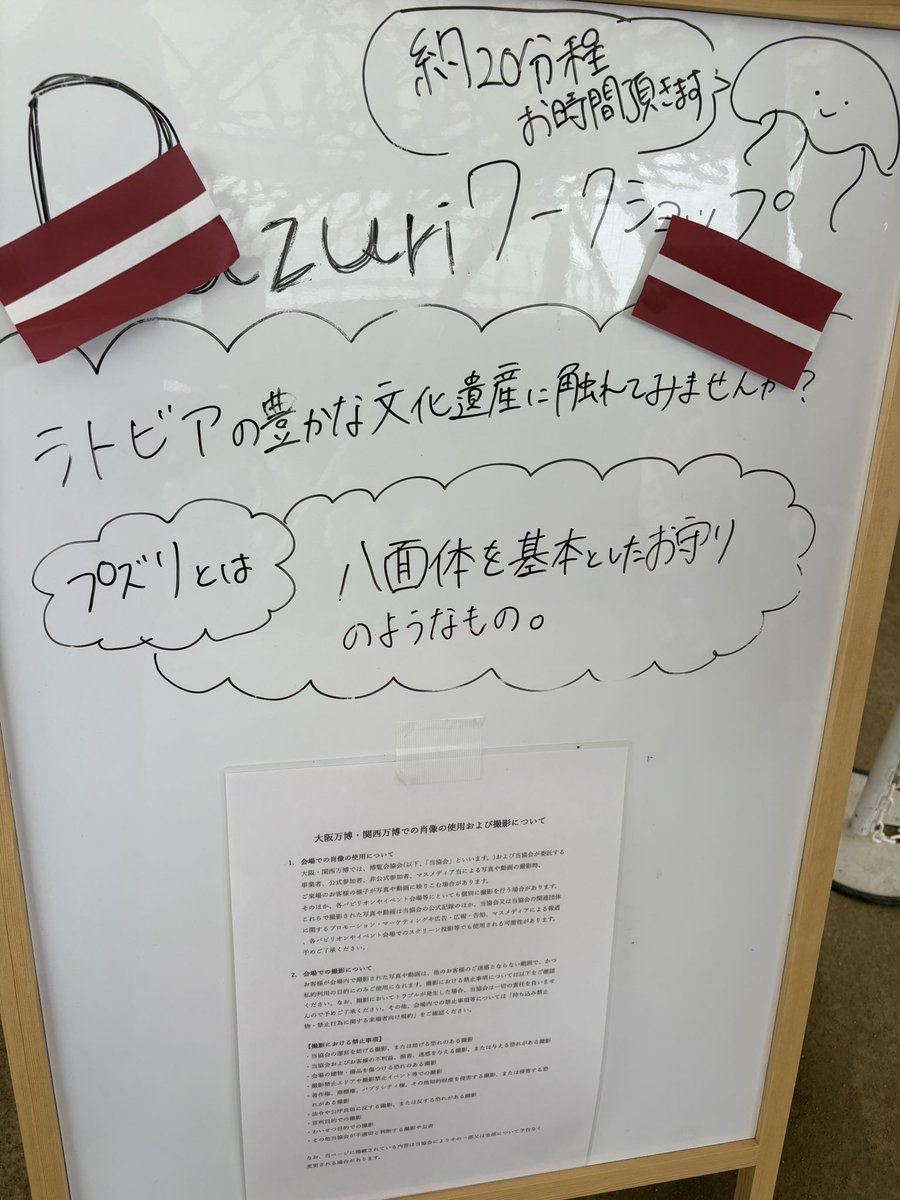 約20分程
お時間頂きます
uzuriワークショップ
ラトビアの豊かな文化遺産に触れてみませんか？
プズリとは
八面体を基本としたお守り
のようなもの。
大阪万博・関西万博での肖像の使用および撮影について
1. 会場での肖像の使用について
大阪・関西万博では、博覧会協会(以下、「当協会」といいます。)および当協会が委託する
事業者、公式参加者、非公式参加者、マスメディア当による写真や動画の撮影時、
ご来場のお客様の様子が写真や動画に映りこむ場合があります。
そのほか、各パビリオンやイベント会場等にといても個別に撮影を行う場合があります。
これらで撮影された写真や動画は当協会の公式記録のほか、当協会又は当協会の関連団体
に関するプロモーション・マーケティングや広告・広報・告知、マスメディアによる報道
、各パビリオンやイベント会場でのスクリーン投影等でも使用される可能性があります。
予めご了承ください。
2. 会場での撮影について
お客様が会場内で撮影された写真や動画は、他のお客様のご迷惑とならない範囲で、かつ
私的利用の目的にのみご使用になれます。撮影における禁止事項については以下をご確認
ください。なお、撮影においてトラブルが発生した場合、当協会は一切の責任を負いませ
んので予めご了承ください。その他、会場内での禁止事項等については「持ち込み禁止
物・禁止行為に関する来場者向け規約」をご確認ください。
【撮影における禁止事項】
・当協会の運営を妨げる撮影、または妨げる恐れのある撮影
・当協会およびお客様の不利益、損害、迷惑を与える撮影、または与える恐れがある撮影
・会場の建物・備品を傷つける恐れのある撮影
・撮影禁止エリアや撮影禁止イベント等での撮影
・著作権、商標権、パブリシティ権、その他知的財産を侵害する撮影、または侵害する恐
れがある撮影
・法令や公序良俗に反する撮影、または反する恐れがある撮影
・営利目的での撮影
・わいせつ目的での撮影
・その他当協会が不適切と判断する撮影や公表
なお、当ページに掲載されている内容は当協会によりその一部又は全部について予告なく
変更される場合があります。